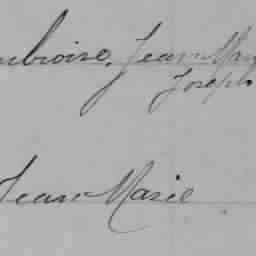 Ambroise, Jean Mar
Joseph
Jean Marie